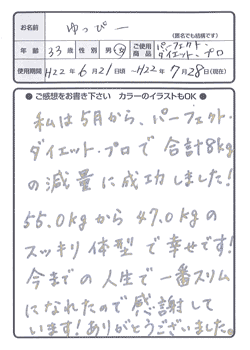 お名前 ゆっぴー (匿名でも結構です)
年齢 33歳 性別 男・女 ご使用商品 パーフェクト・ダイエット・プロ
使用期間 H22年6月21日頃〜H22年7月28日(現在)
● ご感想をお書き下さい カラーのイラストもOK ●
私は5月から、パーフェクト・
ダイエット・プロで合計8kg
の減量に成功しました!
55.0kgから47.0kgの
スッキリ体型で幸せです!
今までの人生で一番スリム
になれたので感謝して
います!ありがとうございました。